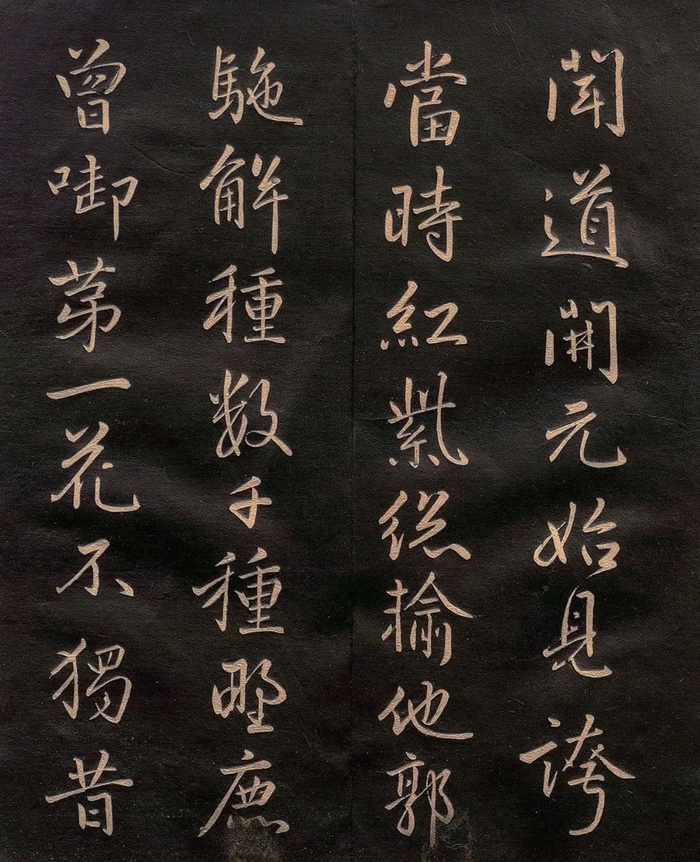 聞道開元始見誇
當時紅紫總揄他郭
駞解種数千種野鹿
曾啣苐一花不獨昔